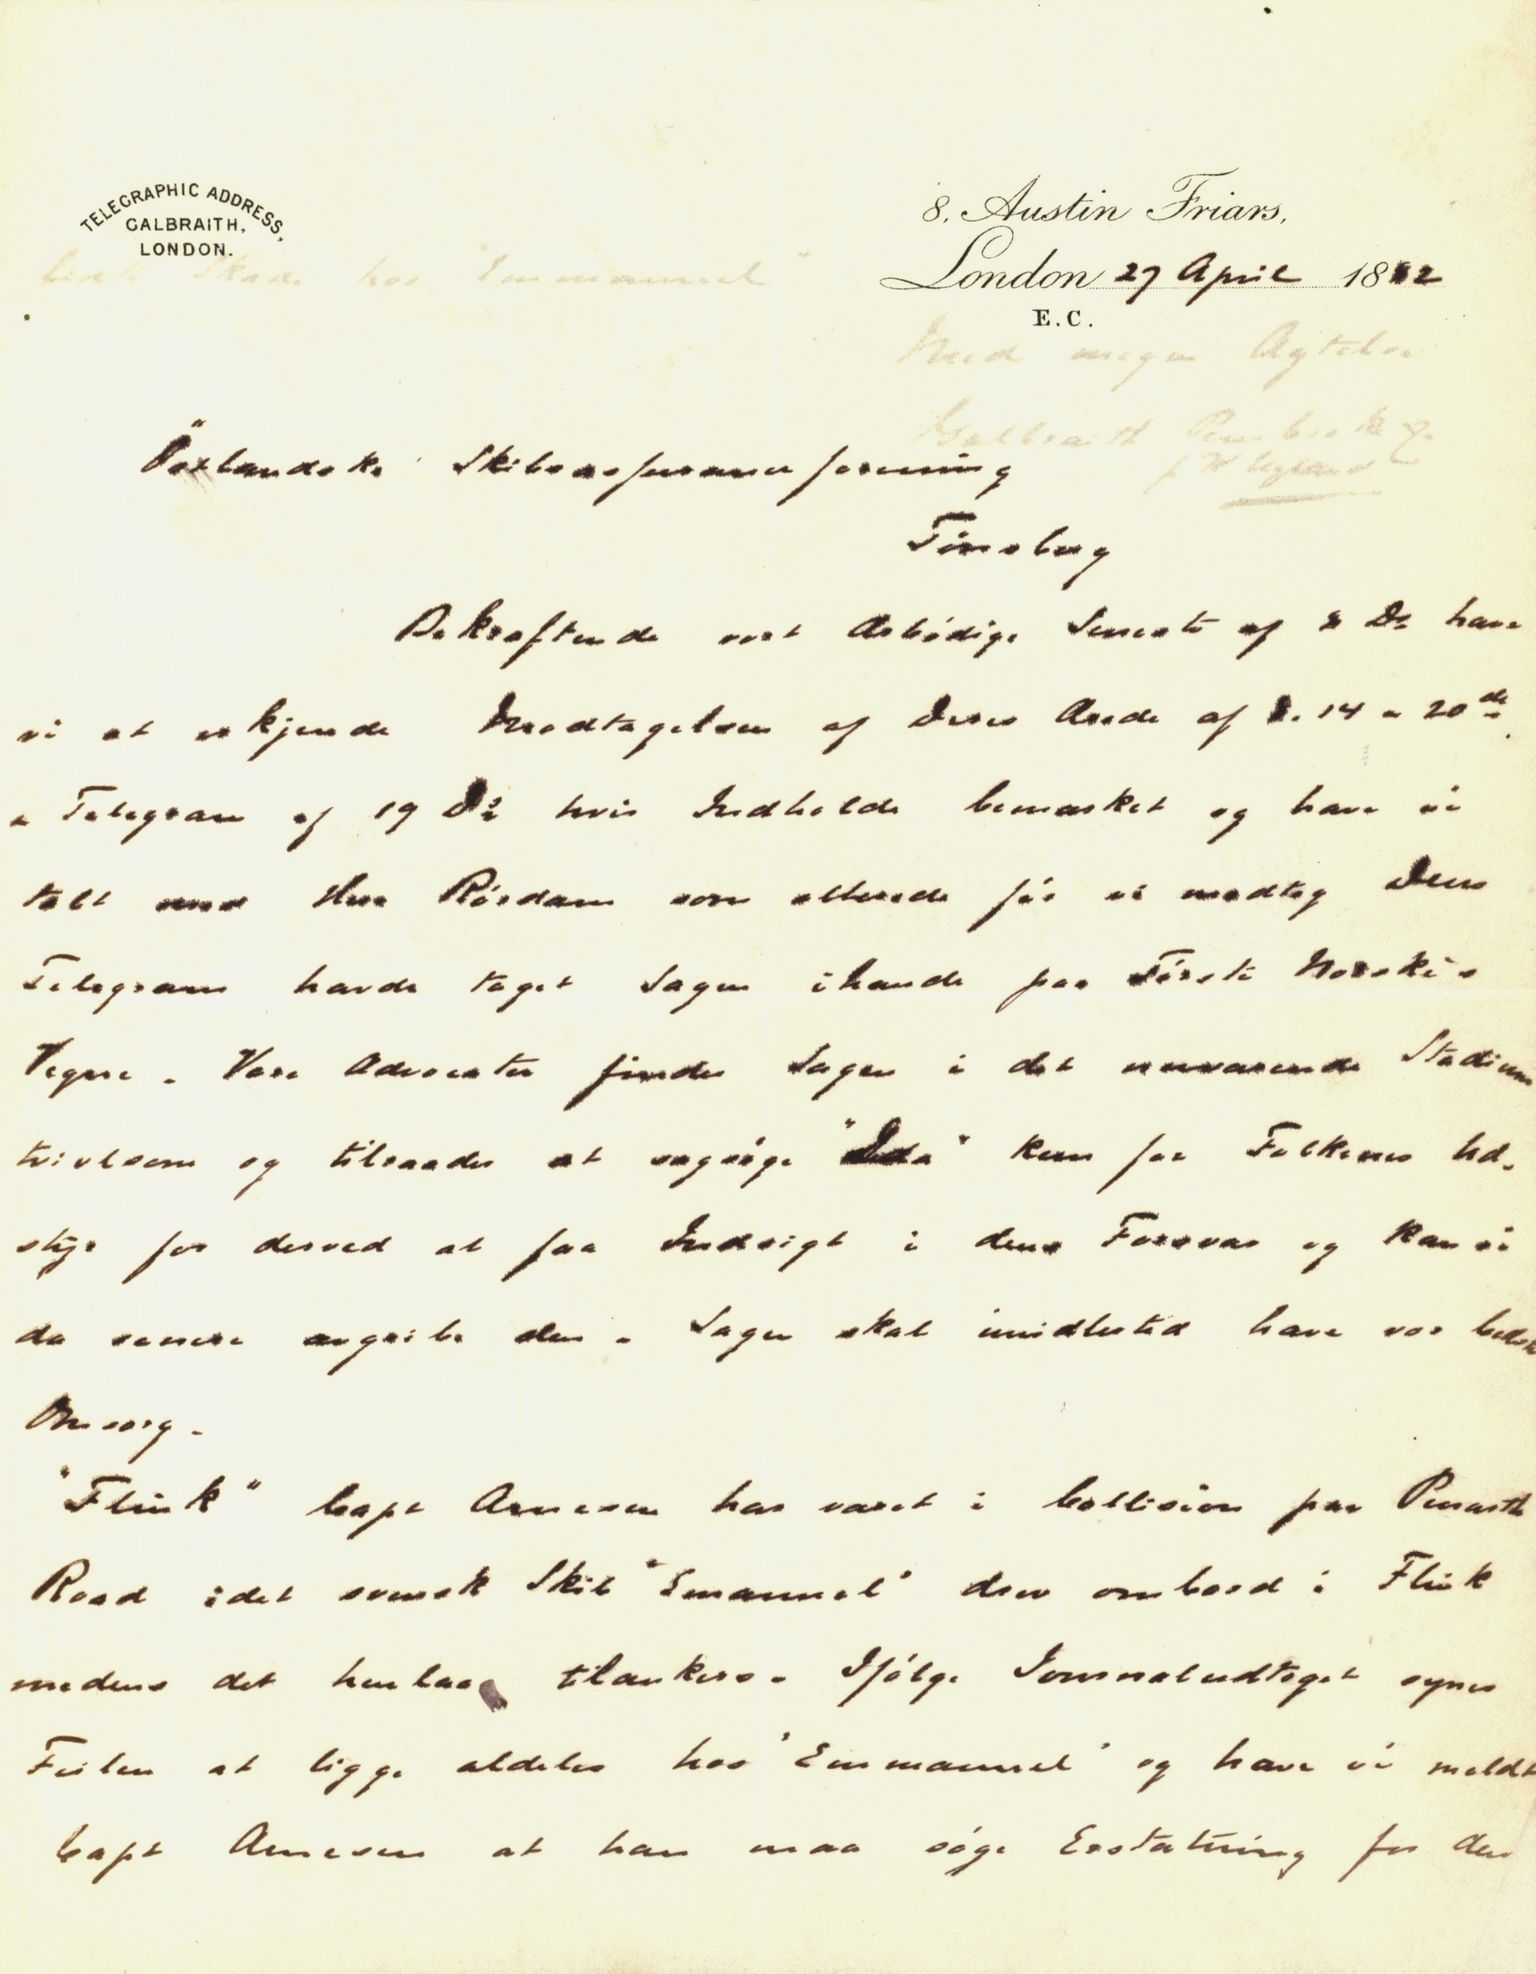 TELEGRAPHIC ADDRESS,
GALBRAITH,
LONDON.
8, Austin Friars,
London 27 April 1882
E.C.
Östlandske Skibsassuranceforening
Tönsberg
Bekræftende vort ærbödige Seneste af 8 Ds have
vi at erkjende Modtagelsen af Deres Ærede af d. 14 & 20de
& Telegram af 19 Ds hvis Indholde bemærket og have vi
talt med Herr Rördam som allerede för vi modtog Deres
Telegram havde taget Sagen ihænde paa Förste Norske's
Vegne. Vore Advocater finder Sagen i det nuværende Stadium
tvivlsom og tilraader at sagsöge "Ida" kun for Folkenes Ud-
styr for derved at faa Indsigt i dens Forsvar og kan vi
da senere angribe den. Sagen skal imidlertid have vor bedste
Omsorg.
"Flink" Capt Arnesen har været i Collision paa Penarth
Road idet svensk Skib "Emanuel" drev ombord i Flink
medens det henlaa tilankers. Ifölge Journaludtoget synes
Feilen at ligge aldeles hos "Emmanuel" og have vi meldt
Capt Arnesen at han maa söge Erstatning for den
lidte Skade hos "Emmanuel"
Med megen Agtelse
Galbraith Pembroke & Co